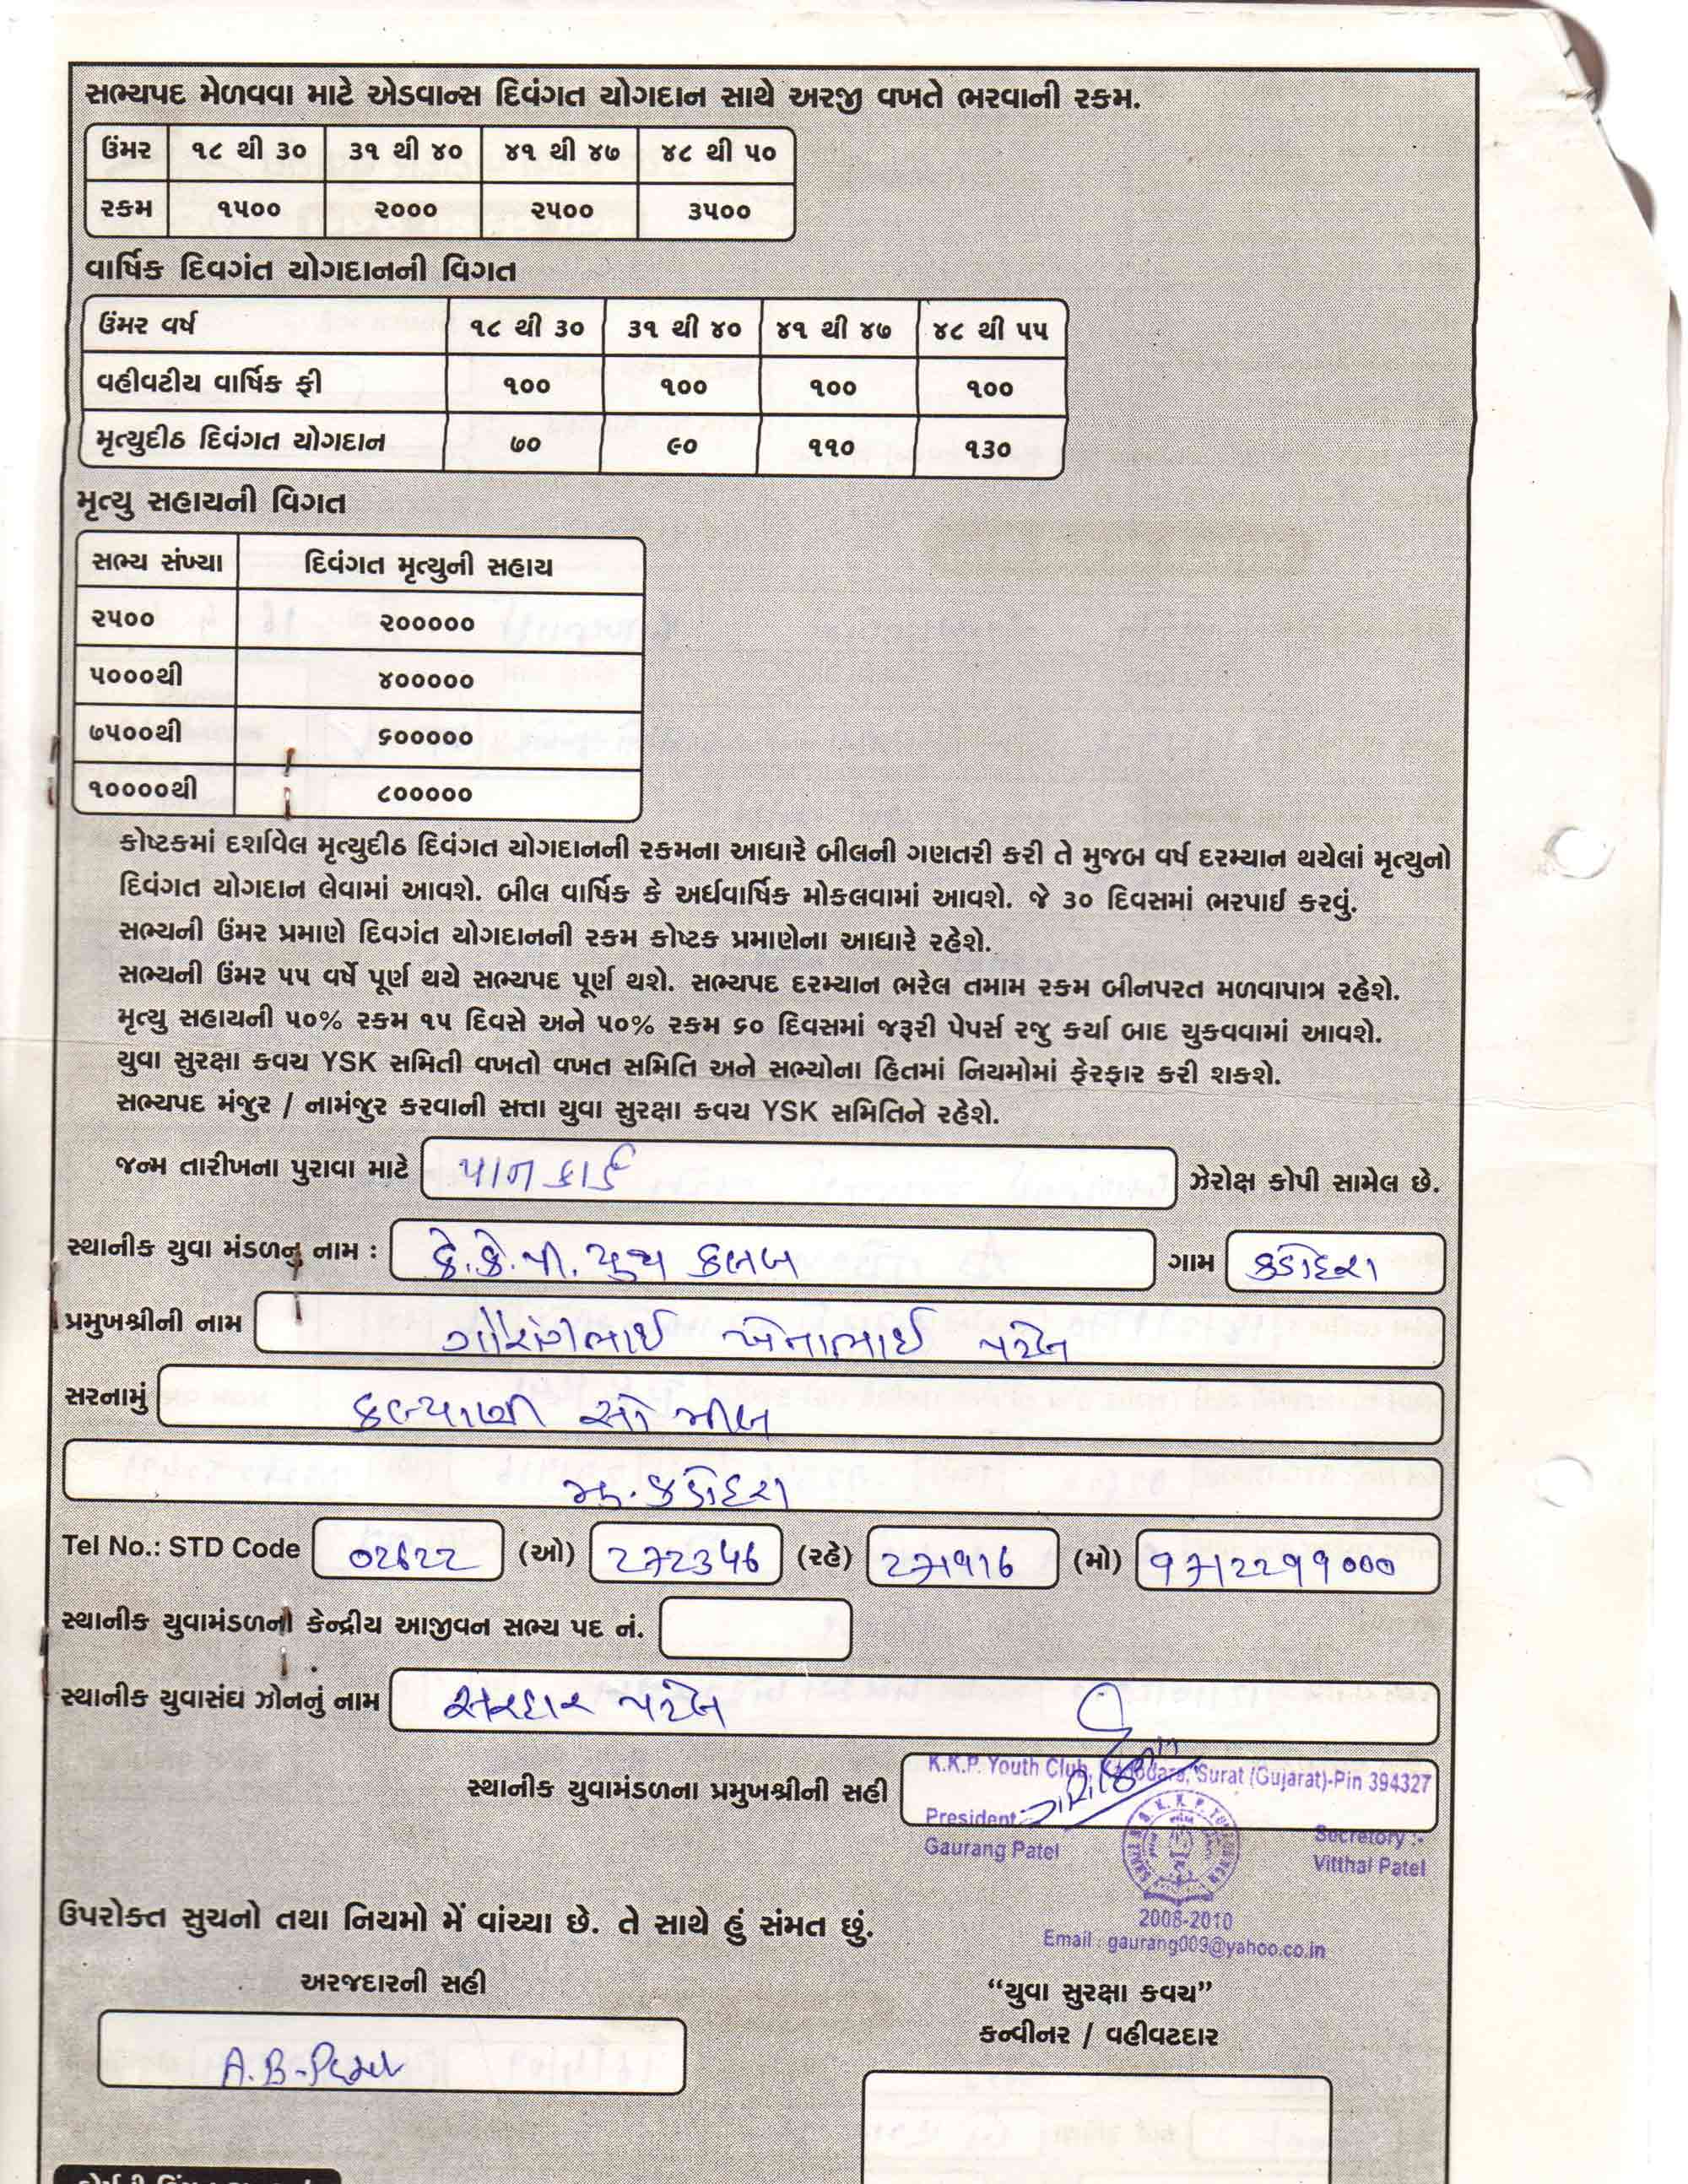 સભ્યપદ મેળવવા માટે એડવાન્સ દિવંગત યોગદાન સાથે અરજી વખતે ભરવાની રકમ.
ઉંમર ૧૮ થી ૩૦ ૩૧ થી ૪૦ ૪૧ થી ૪૭ ૪૮ થી ૫૦
રકમ ૧૫૦૦ ૨૦૦૦ ૨૫૦૦ ૩૫૦૦
વાર્ષિક દિવગંત યોગદાનની વિગત
ઉંમર વર્ષ ૧૮ થી ૩૦ ૩૧ થી ૪૦ ૪૧ થી ૪૭ ૪૮ થી ૫૫
વહીવટીય વાર્ષિક ફી ૧૦૦ ૧૦૦ ૧૦૦ ૧૦૦
મૃત્યુદીઠ દિવંગત યોગદાન ૭૦ ૯૦ ૧૧૦ ૧૩૦
મૃત્યુ સહાયની વિગત
સભ્ય સંખ્યા દિવંગત મૃત્યુની સહાય
૨૫૦૦ ૨૦૦૦૦૦
૫૦૦૦થી ૪૦૦૦૦૦
૭૫૦૦થી ૬૦૦૦૦૦
૧૦૦૦૦થી ૮૦૦૦૦૦
કોષ્ટકમાં દર્શાવેલ મૃત્યુદીઠ દિવંગત યોગદાનની રકમના આધારે બીલની ગણતરી કરી તે મુજબ વર્ષ દરમ્યાન થયેલાં મૃત્યુનો
દિવંગત યોગદાન લેવામાં આવશે. બીલ વાર્ષિક કે અર્ધવાર્ષિક મોકલવામાં આવશે. જે ૩૦ દિવસમાં ભરપાઈ કરવું.
સભ્યની ઉંમર પ્રમાણે દિવગંત યોગદાનની રકમ કોષ્ટક પ્રમાણેના આધારે રહેશે.
સભ્યની ઉંમર ૫૫ વર્ષે પૂર્ણ થયે સભ્યપદ પૂર્ણ થશે. સભ્યપદ દરમ્યાન ભરેલ તમામ રકમ બીનપરત મળવાપાત્ર રહેશે.
મૃત્યુ સહાયની ૫૦% રકમ ૧૫ દિવસે અને ૫૦% રકમ ૬૦ દિવસમાં જરૂરી પેપર્સ રજુ કર્યા બાદ ચુકવવામાં આવશે.
યુવા સુરક્ષા કવચ YSK સમિતી વખતો વખત સમિતિ અને સભ્યોના હિતમાં નિયમોમાં ફેરફાર કરી શકશે.
સભ્યપદ મંજુર / નામંજુર કરવાની સત્તા યુવા સુરક્ષા કવચ YSK સમિતિને રહેશે.
જન્મ તારીખના પુરાવા માટે પાન કાર્ડ ઝેરોક્ષ કોપી સામેલ છે.
સ્થાનીક યુવા મંડળનુ નામ : કે.કે.પી. યુથ કલબ ગામ કડોદરા
પ્રમુખશ્રીની નામ ગૌરાંગભાઈ ખેનાભાઈ પટેલ
સરનામું કલ્યાણી સો મીલ
મુ. કડોદરા
Tel No.: STD Code 02622 (ઓ) 272346 (રહે) 271916 (મો) 9712299000
સ્થાનીક યુવામંડળનો કેન્દ્રીય આજીવન સભ્ય પદ નં.
સ્થાનીક યુવાસંઘ ઝોનનું નામ સરદાર પટેલ
K.K.P. Youth Club, Kadodara, Surat (Gujarat)-Pin 394327
સ્થાનીક યુવામંડળના પ્રમુખશ્રીની સહી
President:- Secretory :-
Gaurang Patel Vitthal Patel
2008-2010
Email : gaurang009@yahoo.co.in
ઉપરોક્ત સુચનો તથા નિયમો મેં વાંચ્યા છે. તે સાથે હું સંમત છું.
અરજદારની સહી
A.B-Patel
“યુવા સુરક્ષા કવચ”
કન્વીનર / વહીવટદાર